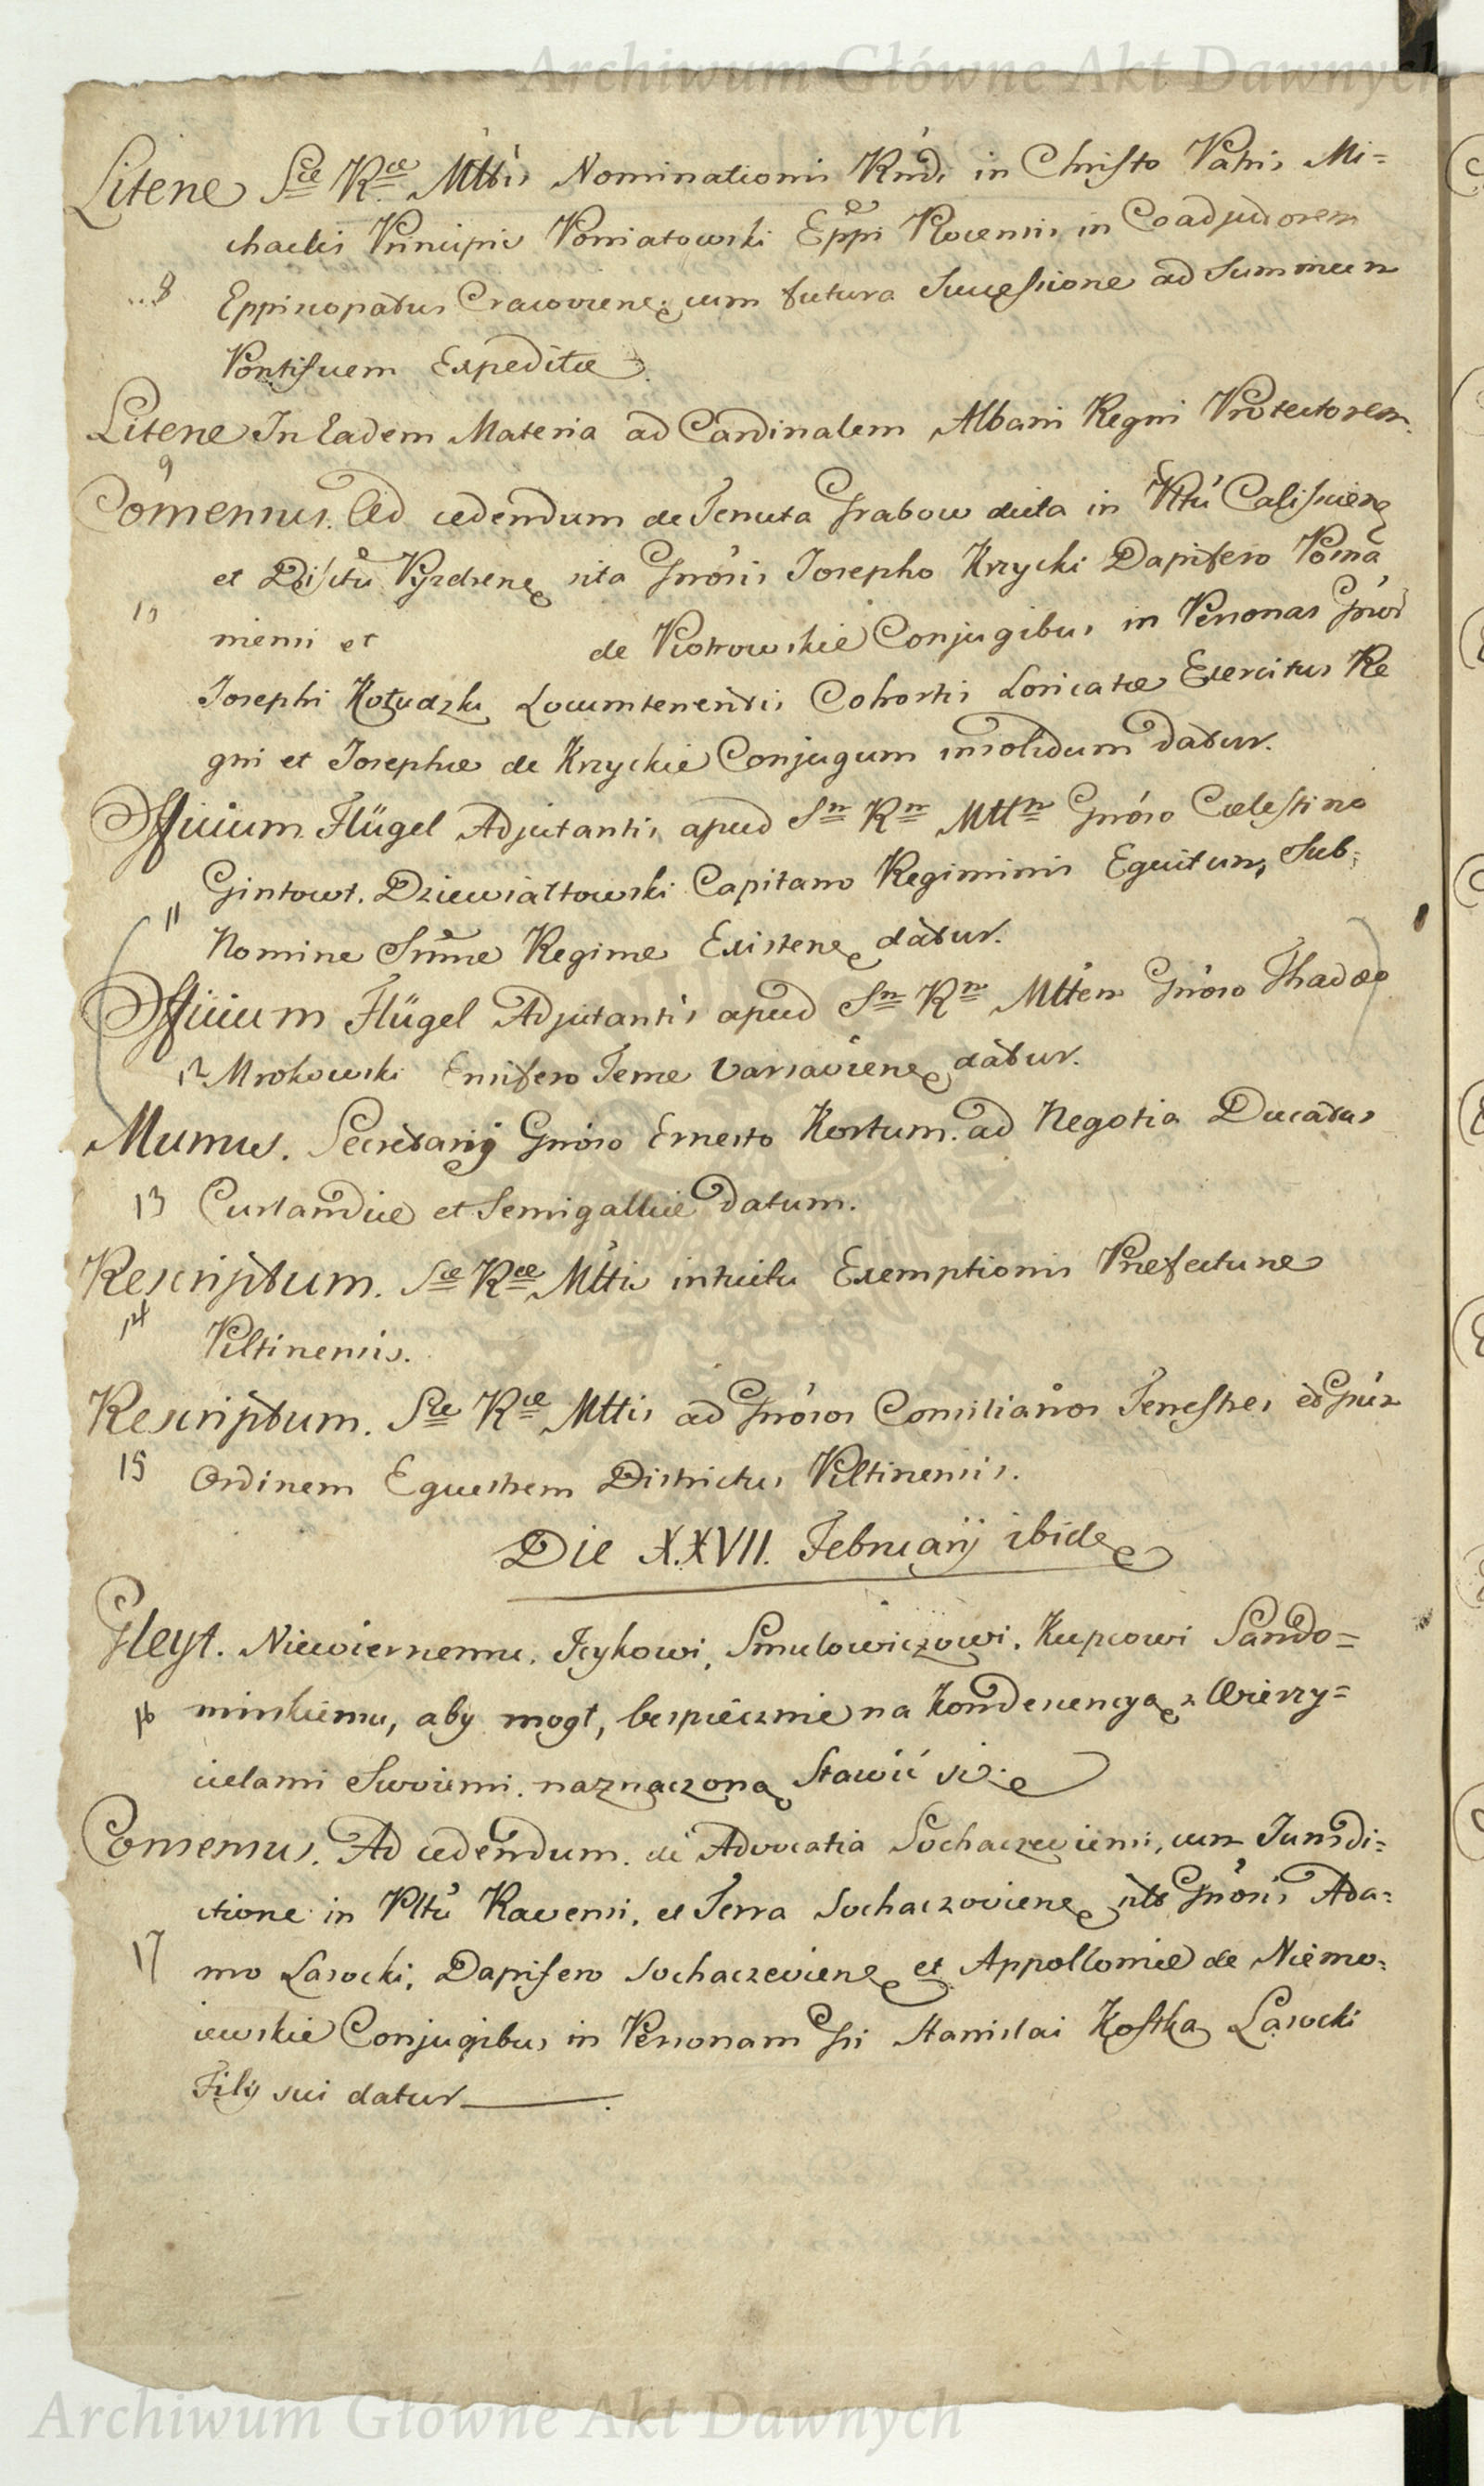 Archiwum Główne Akt Dawnych
Literae Scæ Ræ Mttis Nominationis Rndi in Christo Patris Mi=
chaelis Principis Poniatowski Eppi Plocensis in Coadjutorem
8 Eppiscopatus Cracoviens: cum futura Successione ad Summum
Pontificem Expeditæ.
Literae In Eadem Materia ad Cardinalem Albani Regni Protectorem.
9
Consensus. Ad cedendum de Tenuta Grabow dicta in Pltũ Calissien
et Dis̃tũ Pyzdrens sita Gnosis Josepho Krzycki Dapifero Posna
10 niensi et de Piotrowskie Conjugibus in Personas Gnor
Josephi Kołudzki Locumtenentis Cohortis Loricatæ Exercitus Re
gni et Josephæ de Krzyckie Conjugum insolidum datur.
Officium Flügel Adjutantis apud Sm Rm Mttm Gnoso Cælestino
11 Gintowt. Dziewiałtowski Capitano Regiminis Equitum, Sub:
Nomine Snmæ Reginæ Existens datur.
Officium Flügel Adjutantis apud Sm Rm Mttem Gnoso Thadæo
12 Mrokowski Ensifero Terræ Varsaviens datur.
Munus. Secretarij Gnoso Ernesto Kortum. ad Negotia Ducatus
13 Curlandiæ et Semigalliæ datum.
Rescriptum. Sæ Ræ Mttis intuitu Exemptionis Præfecturæ
14 Piltinensis.
Rescriptum. Sæ Ræ Mttis ad Gnosos Consiliarios Terrestres et Gnũ
15 Ordinem Equestrem Districtus Piltinensis.
Die XXVII. Februarij ibide
Gleyt. Niewiernemu, Icykowi, Smulowiczowi, Kupcowi Sando=
16 mirskiemu, aby mogł, bespiecznie na Kondescencyą z Wierzy=
cielami Swoiemi, naznaczoną Stawić się
Consensus. Ad cedendum de Advocatia Sochaczeviensi, cum Jurisdi=
ctione in Pltũ Ravensi, et Terra Sochaczoviens sita Gnosis Ada=
17 mo Lasocki, Dapifero Sochaczeviens et Appolloniæ de Niemo=
iewskie Conjugibus in Personam Gsi Stanislai Kostka Lasocki
Filij sui datur
Archiwum Główne Akt Dawnych